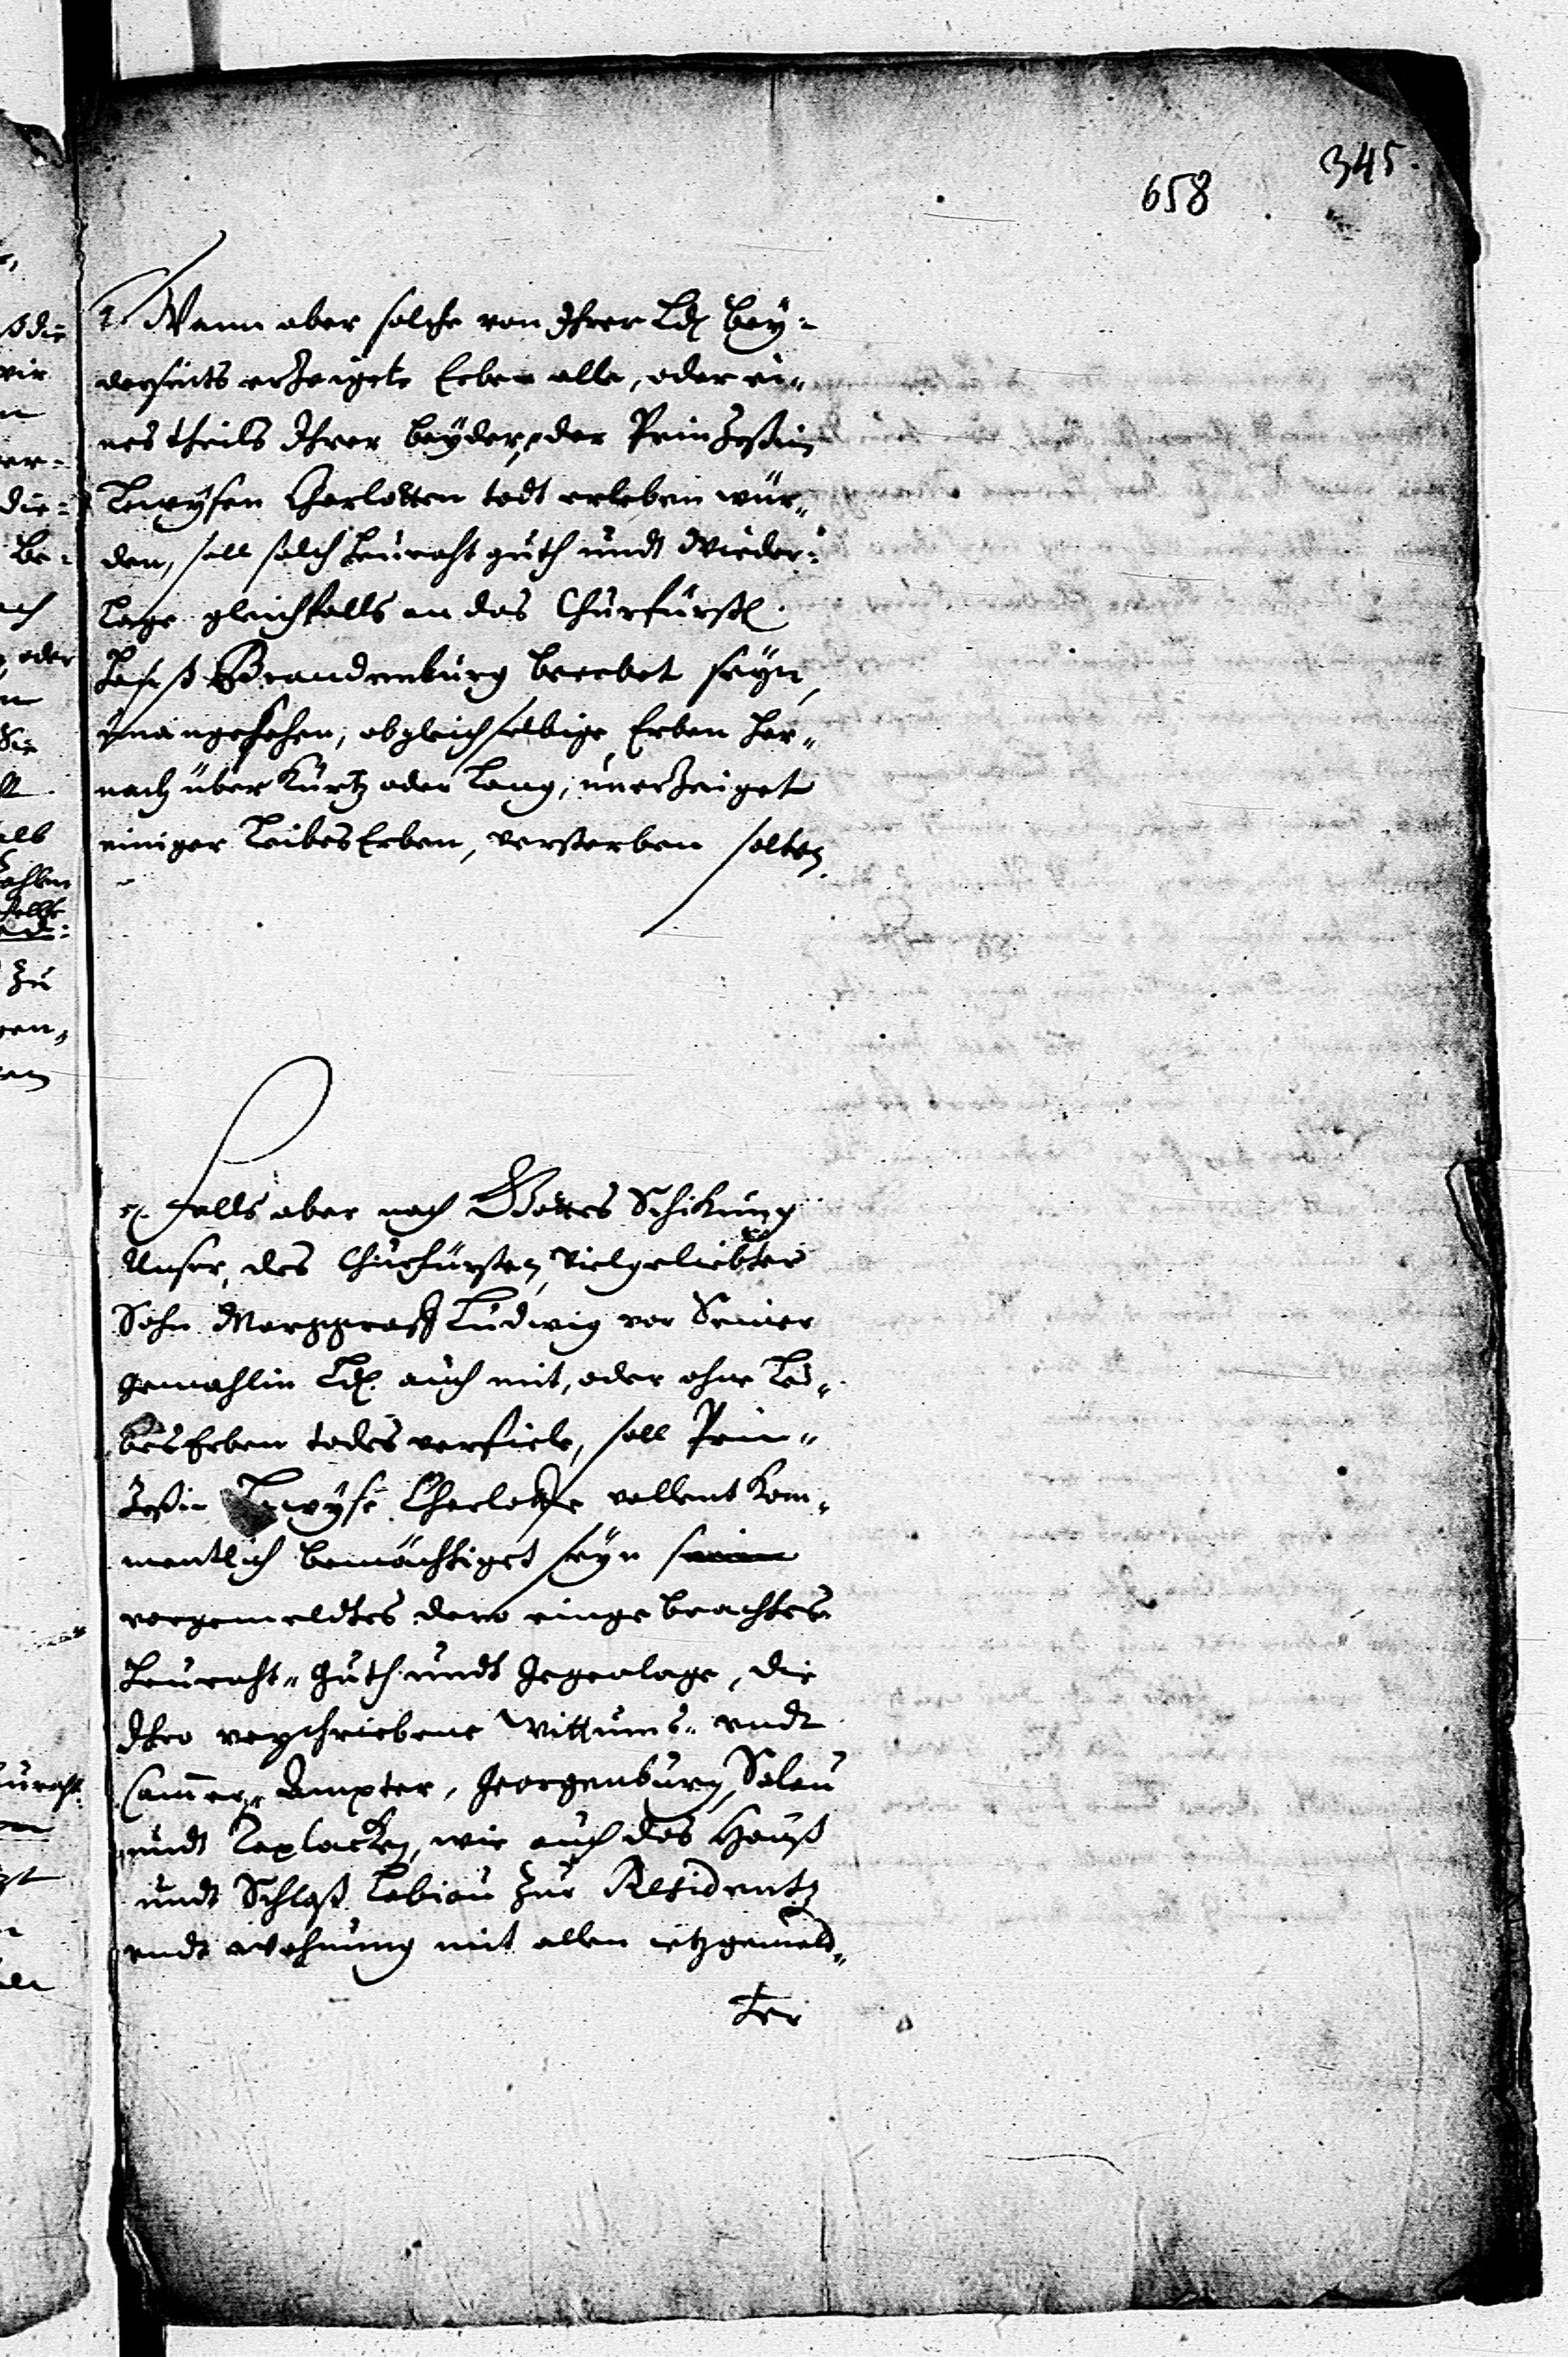 345.
658
Wann aber solche von Ihrer Ld. bey-
derseits erzeigete Erben alle, oder ei-
nes theils Ihrer beyder, der Prinzeßin
Lowysen Charlotten todt erleben wür-
den, soll solch Heuraht guth undt Wieder-
lage gleichfalls an das Churfürstl.
Hauß Brandenburg beerbet seyn,
unangesehen, obgleich selbige Erben her-
nach über kurtz oder lang, unerzeiget
einiger LeibesErben, versterben solten.
Falls aber nach Gottes Schikung
Unser, des Churfürsten, Vielgeliebter
Sohn Marggraff Ludwig vor Seiner
gemahlin Ld. auch mit, oder ohne Lei-
besErben todes verfiele, soll Prin-
zeßin Lowyse Charlotte vollent kom-
mentlich bemächtiget seyn
vorgemeldtes dero eingebrachtes
Heuraht-Guth undt Gegenlage, die
Ihro verschriebene Wittums- undt
Cammer-Ampter, Georgenburg, Salau
undt Taplacken, wie auch das Hauß
undt Schloß Labiau zur Residentz
undt wohnung mit allen ietzgemeld-
ten